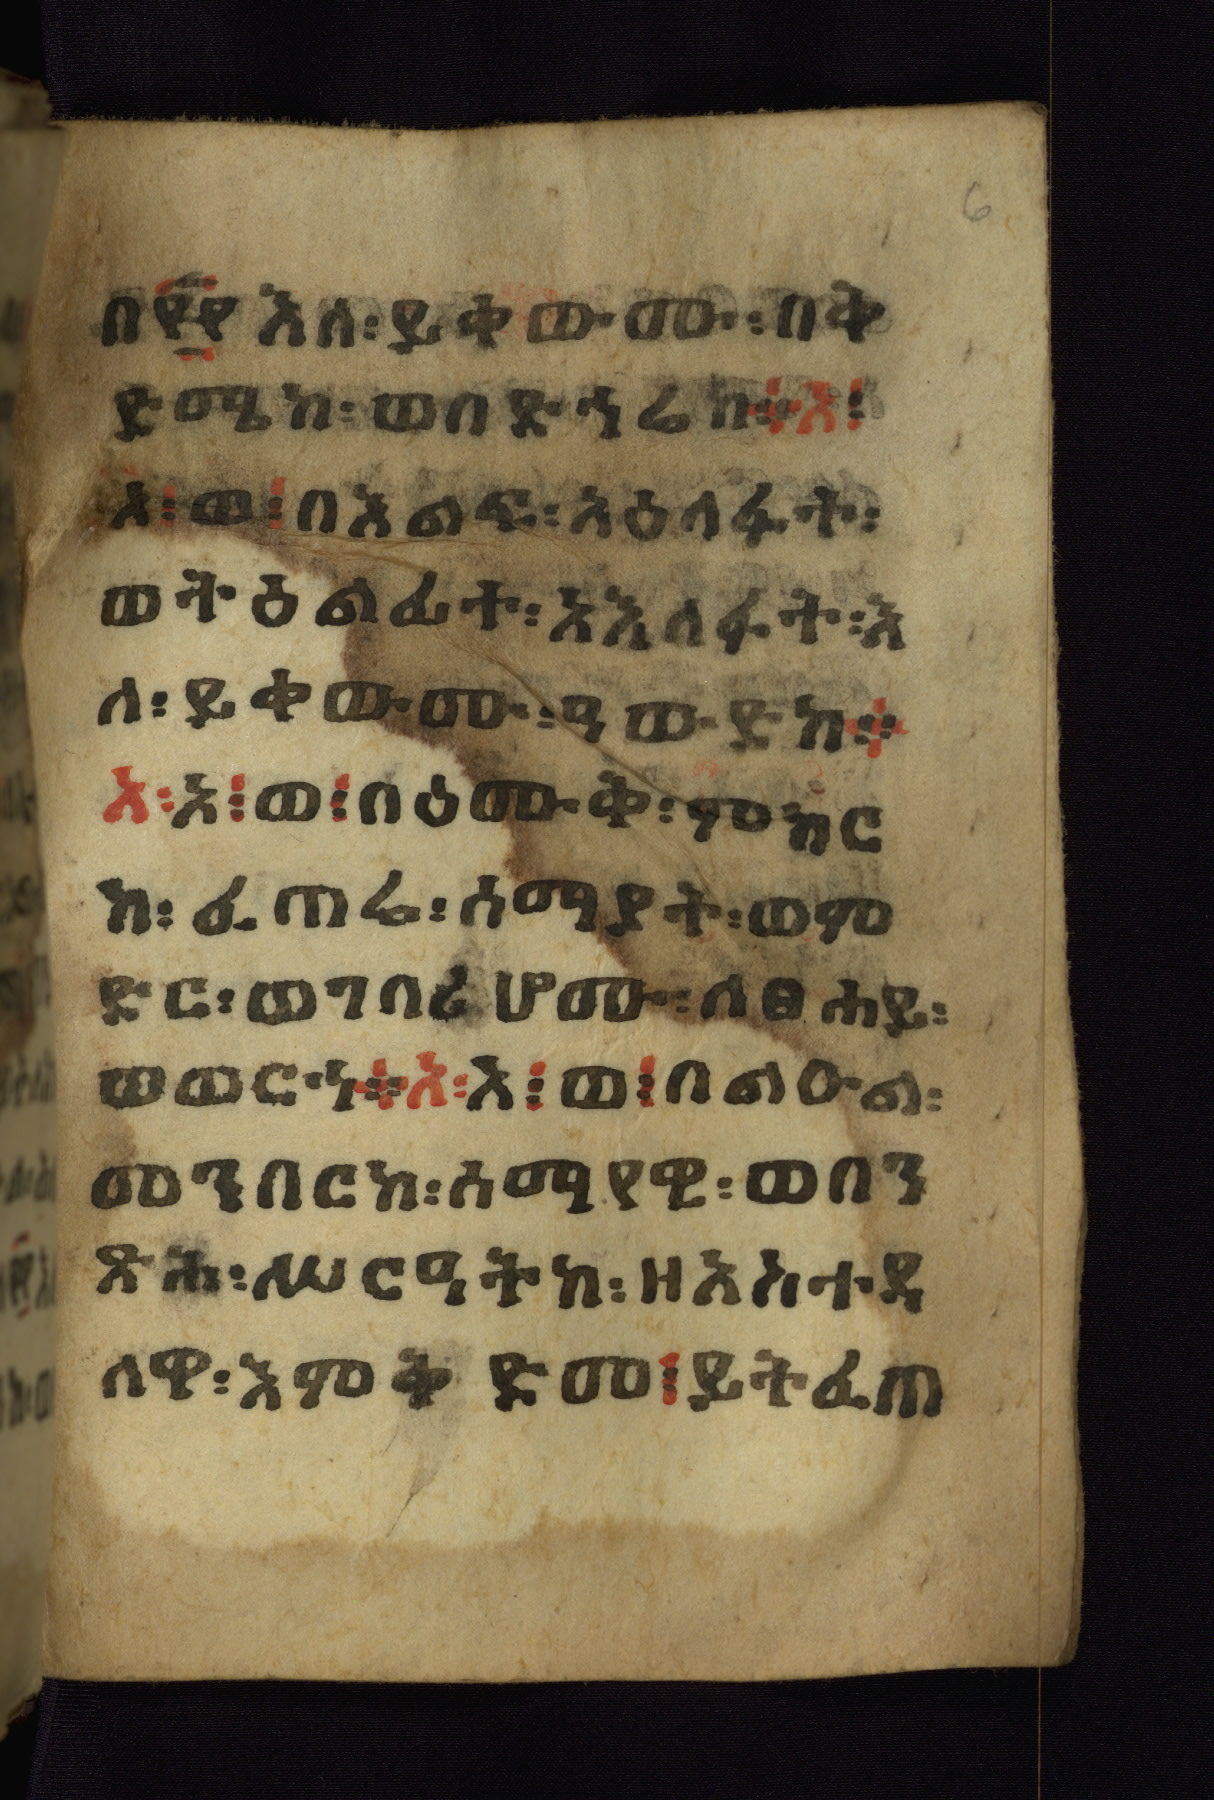 6
በ፳፬እለ፡ይቀውሙ፡በቅ
ድሜከ፡ወበድኅሬከ፨እ፡
እ፡ወ፡በእልፍ፡አዕላፋት፡
ወትዕልፊተ፡አእላፋት፡እ
ለ፡ይቀውሙ፡ዓውድከ፨
እ፡እ፡ወ፡በዕሙቅ፡ምክር
ከ፡ፈጠሬ፡ሰማያት፡ወም
ድር፡ወገባሪሆሙ፡ለፀሐይ፡
ወወርኅ፨እ፡እ፡ወ፡በልዑል፡
መንበርከ፡ሰማያዊ፡ወበን
ጽሕ፡ለሠርዓትከ፡ዘአስተዳ
ለዋ፡እምቅድመ፡ይትፈጠ